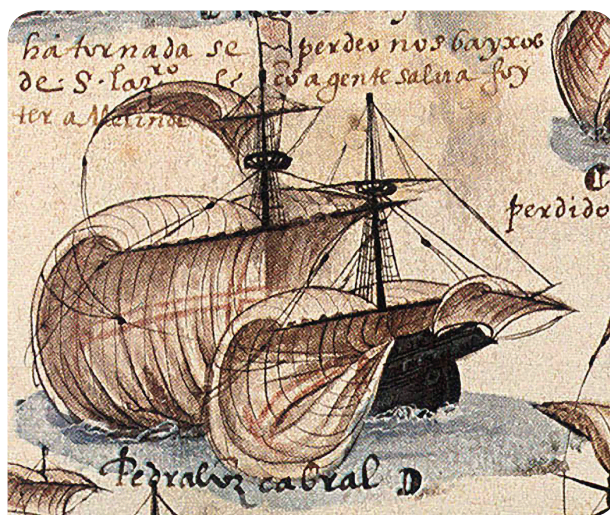 ha tornada se perdeo nos bayxos
de · S · lazro cõ a gente salva foy
ter a Melinde
perdido
Pedralvz cabral D